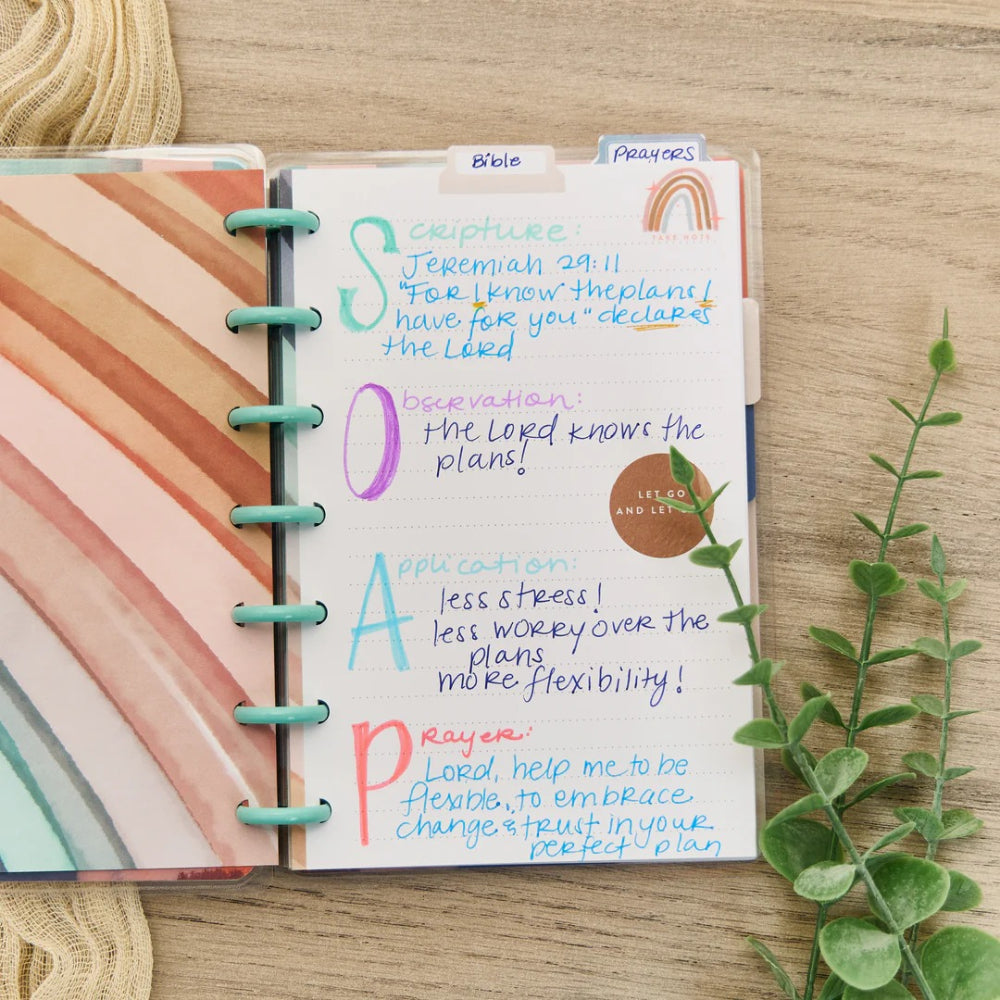 Bible
PRAYERS
TAKE NOTE
Scripture:
Jeremiah 29:11
"For I know the plans I
have for you" declares
the Lord
Observation:
the Lord knows the
plans!
LET GO
AND LET
Application:
less stress!
less worry over the
plans
more flexibility!
Prayer:
Lord, help me to be
flexible, to embrace
change & trust in your
perfect plan